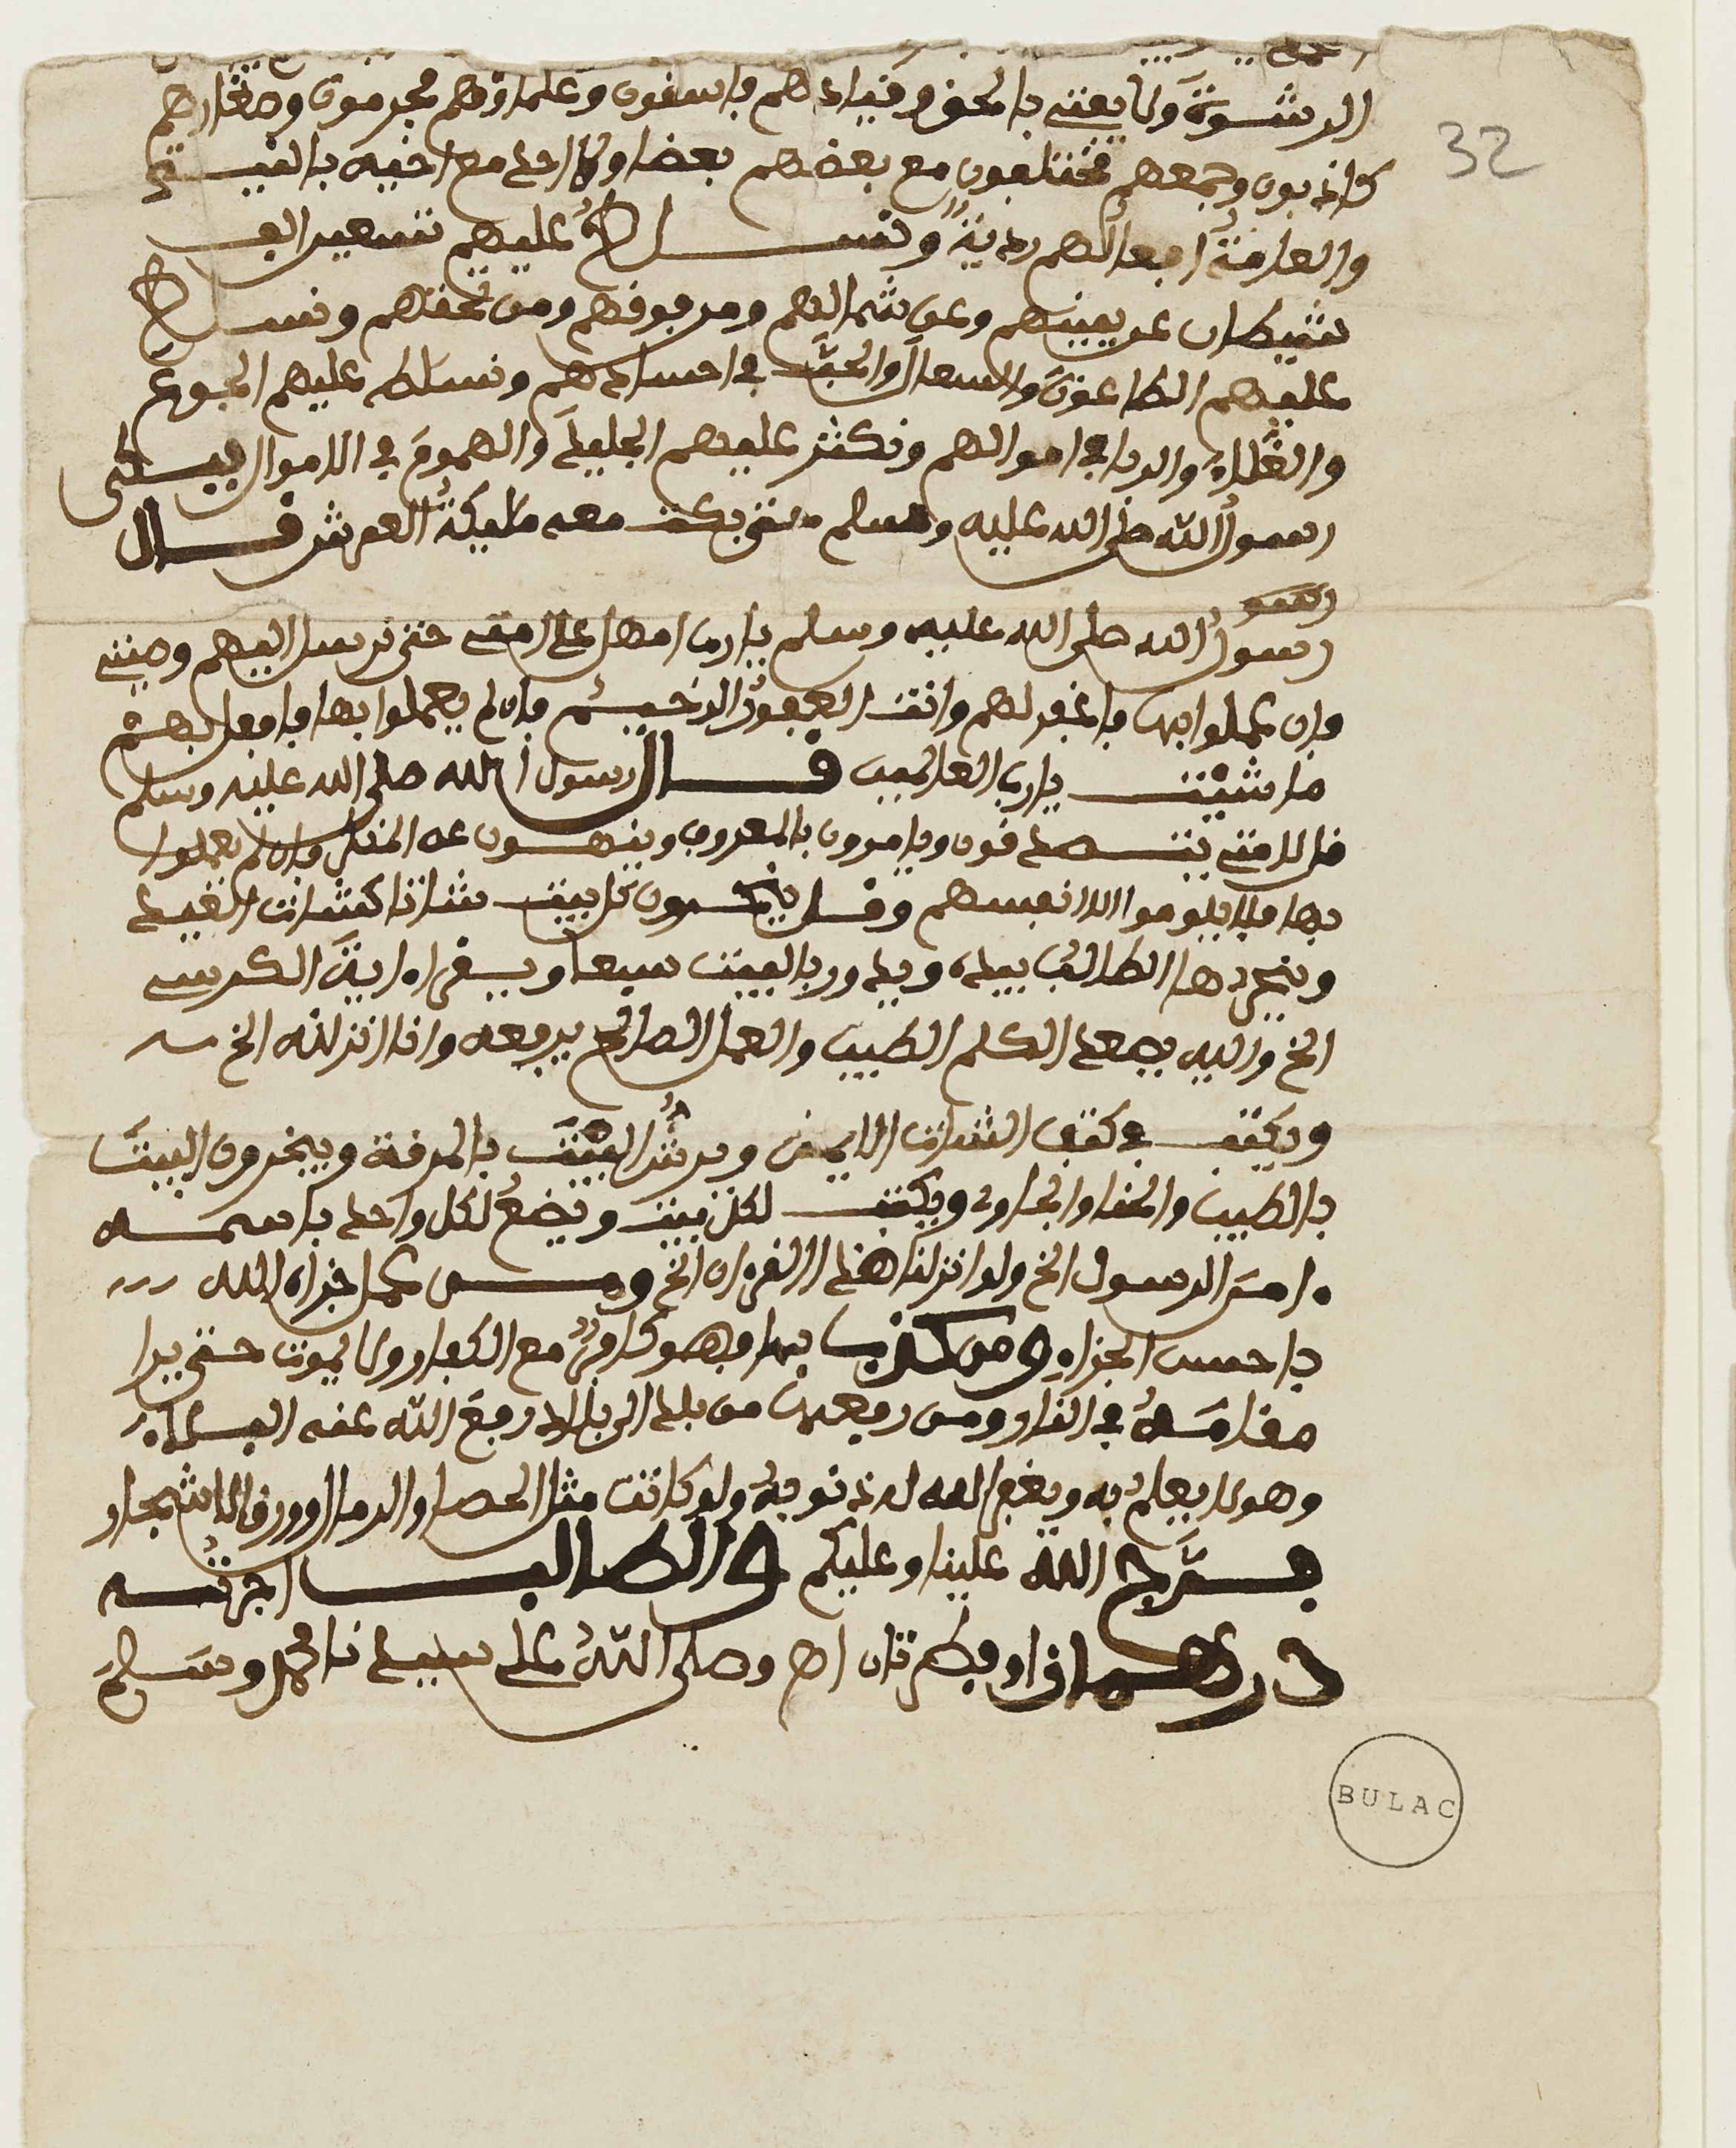 32
الرشوة ولا يعني بالحق وقياده هم فاسفون وعلماوهم مجرمون وصغارهم
كاذبون وجمعهم مختلفون مع بعضهم بعضا وكل احد مع اخيه بالغيبة
والعامة افعالهم ردية ونسلط عليهم تسعين الف
شيطان عن يمينهم وعن شمالهم ومن فوقهم ومن تحتهم ونسلط
عليهم الطاعون والسعال والحب في اجسادهم ونسلط عليهم الجوع
والغلاء والربا في اموالهم ونكثر عليهم الجليد والهموم في الاموال فبكى
رسول الله صلى الله عليه وسلم حتى بكت معه مليكة العرش قال
رسو
رسول الله صلى الله عليه وسلم يا رب امهل على امتي حتى نرسل اليهم وصيتي
فان عملوا بها فاغفر لهم وانت الغفور الرحيم فان لم يعملوا بها فافعل بهم
ما شئت يا رب العالمين قال رسول الله صلى الله عليه وسلم
قل لامتي يتصدقون ويامرون بالمعروف وينهون عن المنكر فان لم يعملوا
بها فلا يلوموا الا انفسهم وقل يخرجون كل بيت شاتا كشات العيد
ويجردها الطالب بيده ويدور بالبيت سبعا ويقراء اية الكرسي
الخ واليه يصعد الكلم الطيب والعمل الصالح يرفعه وانا انزلنه الخ
ويكتب في كتف الشات الايمن ويرش البيت بالمرقة ويبخرون البيت
بالطيب والحنا والجاوى ويكتب لكل بيت ويضع لكل واحد باسمه
ءامن الرسول الخ ولو انزلنا هذا القرءان الخ ومن عمل جزاه الله
باحسن الجزاء ومن كذب بها فهو كافر مع الكفار ولا يموت حتى يرا
مقامه في النار ومن رفعها من بلد الى بلاد رفع الله عنه البلاء
وهو لا يعلم به ويغفر الله له ذنوبه ولو كانت مثل الحصا والرمال وورق الاشجار
فرج الله علينا وعليكم والطالب اجرته
درهمان او فطرتان اه وصلى الله على سيدنا محمد وسلم
BULAC